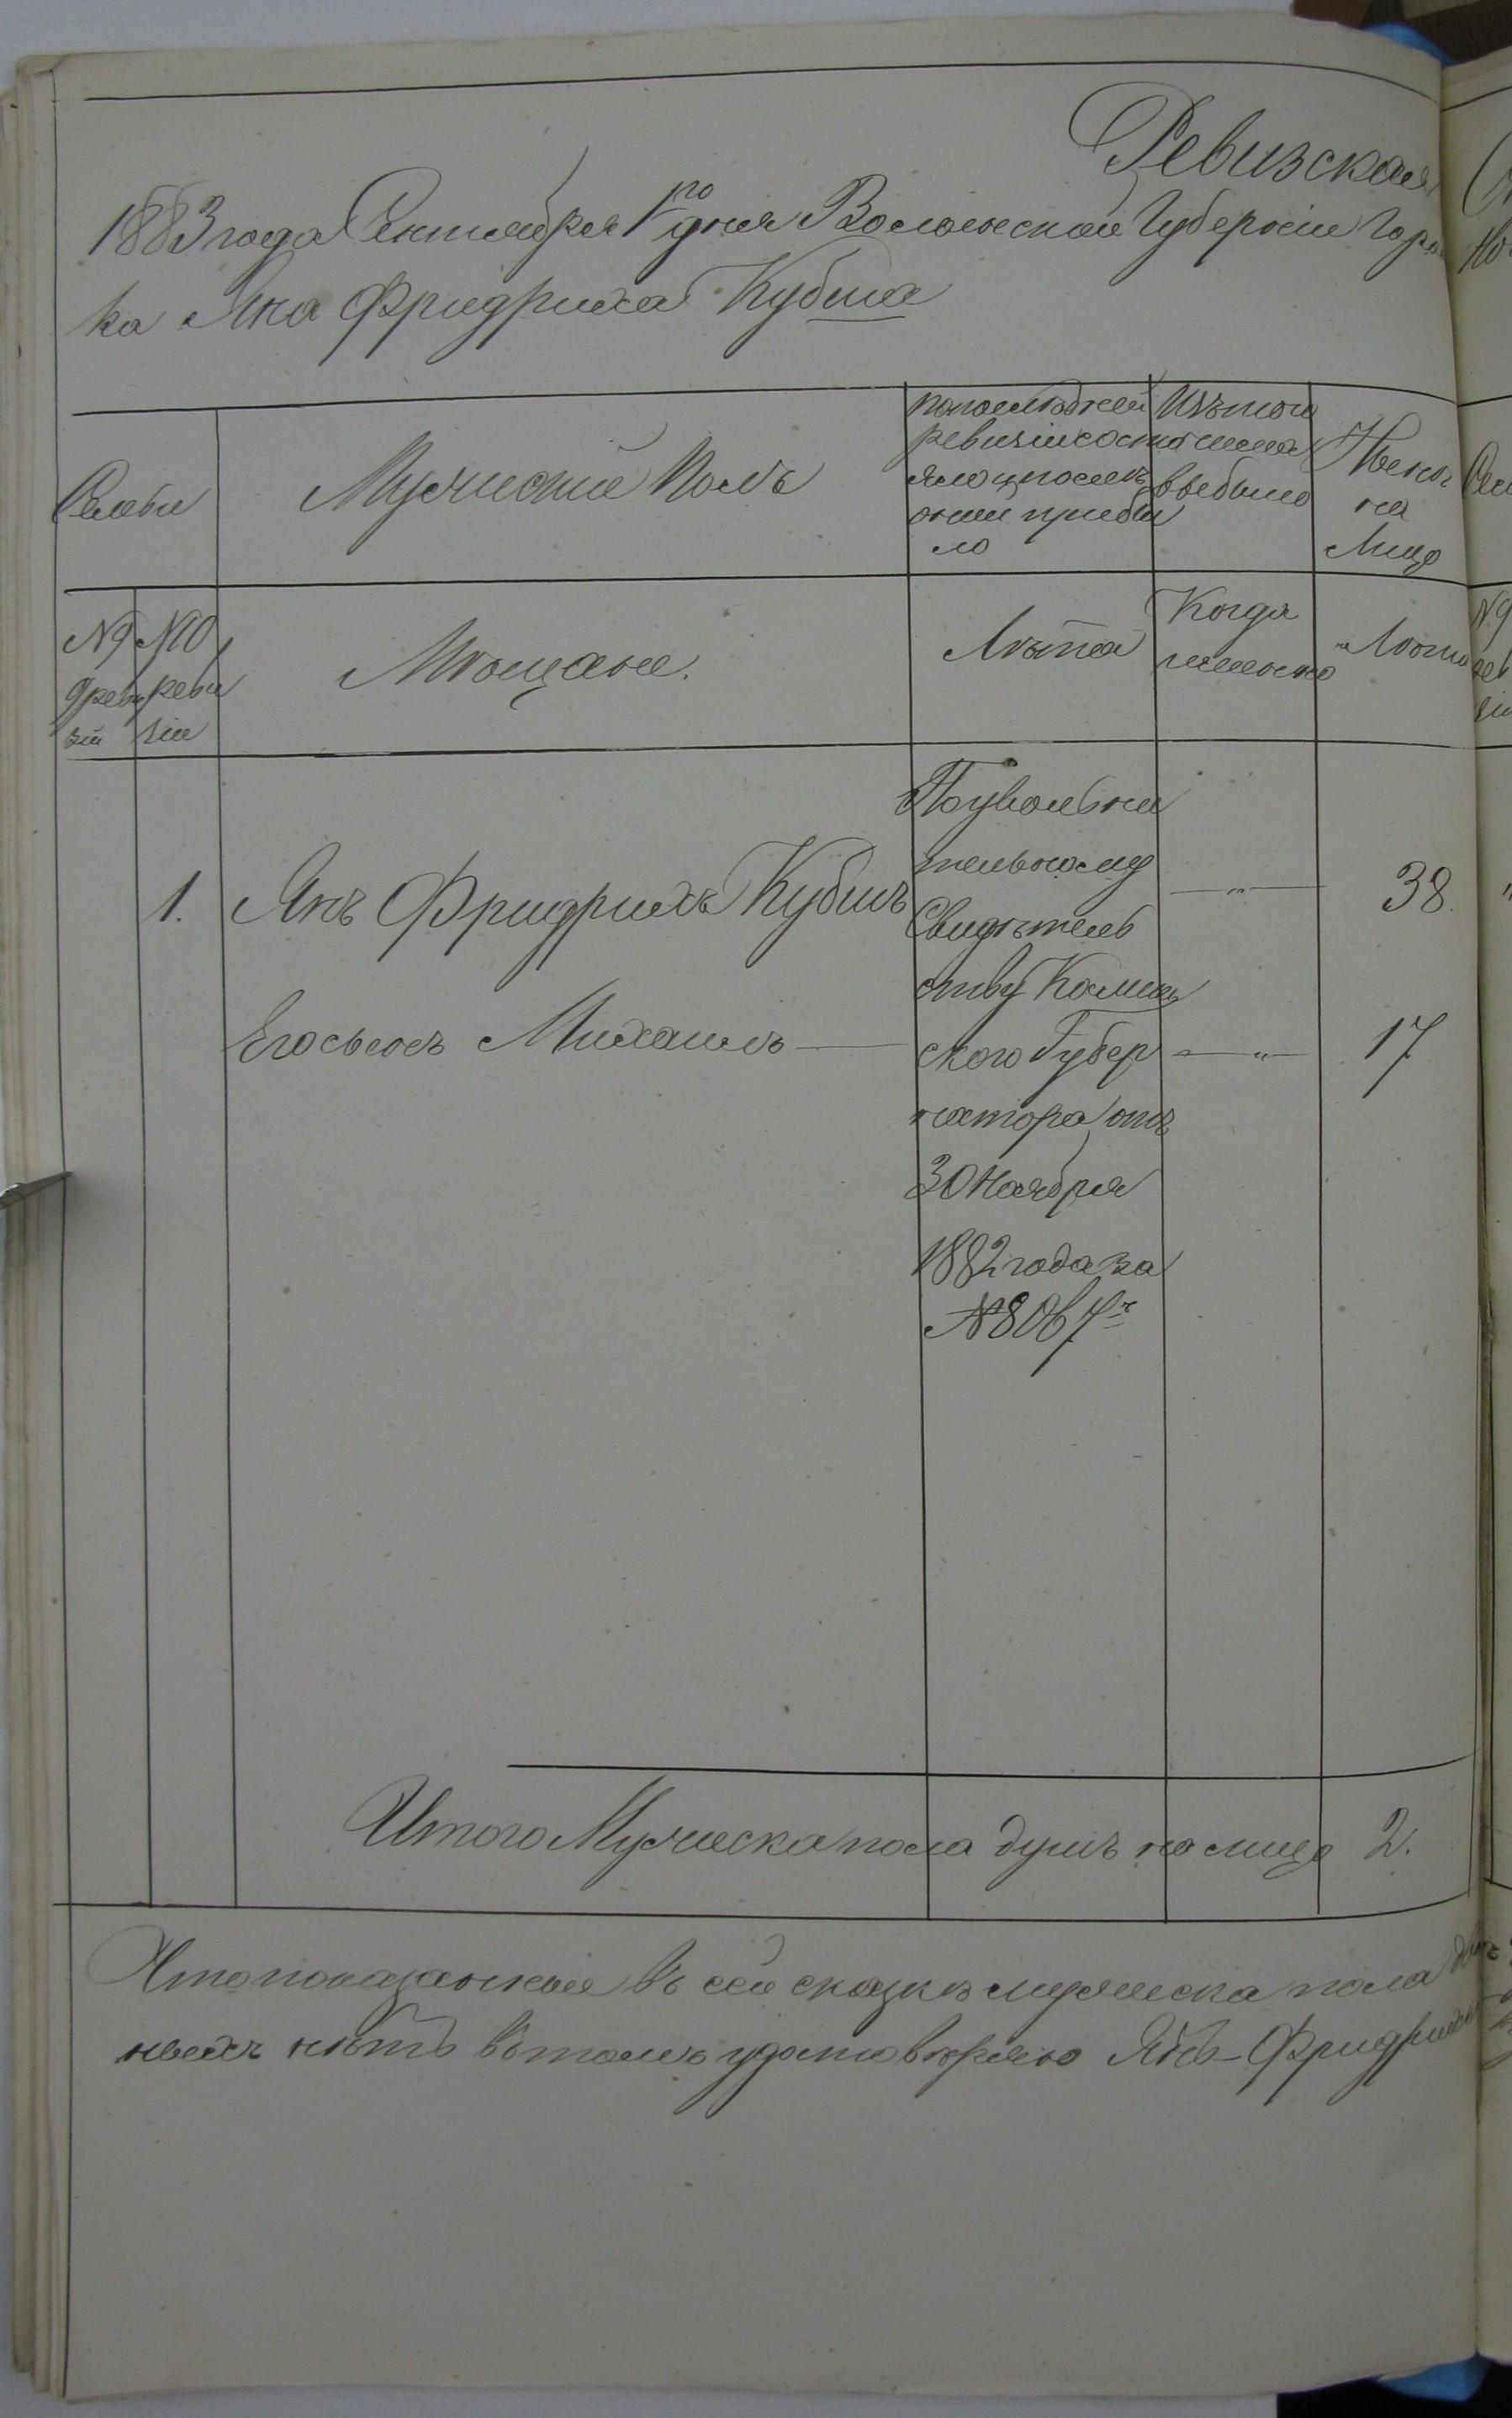 Ревизская
1883 года Сентября 1го дня Волынской Губерніи Горо
ка Яна Фридриха Кубша
Семьи
Мужескій Полъ
По последней
ревизіи состо
яло и после
оной прибы
ло
Изъ того
числа
выбыло
Ныне
на
Лицо
№ 9
реви
зіи
№ 10
реви
зіи
Мѣщане.
Лѣта
Когда
именно
Лѣта
1. Янъ Фридрихъ Кубшъ — " — 38.
Его сынъ Михаилъ — — " — 17
По увольни
тельному
Свидѣтель
ству
ского Губер
натора отъ
30 Ноября
1882 года за
№ 8067м
Итого Мужеска пола душъ на лицо 2.
Что показанныя въ сей сказкѣ мужеска пола
нѣтъ въ томъ удостовѣряю Янъ-Фридрихъ